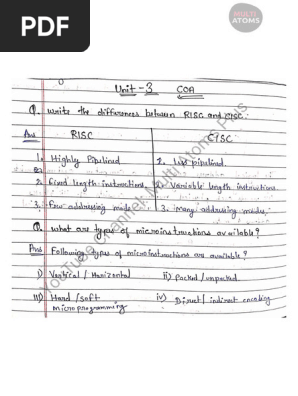 PDF
MULTI
ATOMS
Unit-3 COA
Q. Write the differences between RISC and CISC.
Ans RISC CISC
1. Highly Pipelined 1. Less pipelined.
2. fixed length instructions 2. Variable length instructions
3. Few addressing modes 3. Many addressing modes.
Q. what are types of microinstructions available?
Ans Following types of microinstructions are available?
i) Vertical / Horizontal ii) Packed / unpacked.
iii) Hard / soft microprogramming iv) Direct / indirect encoding
YouTube Channel: Multi Atoms Plus